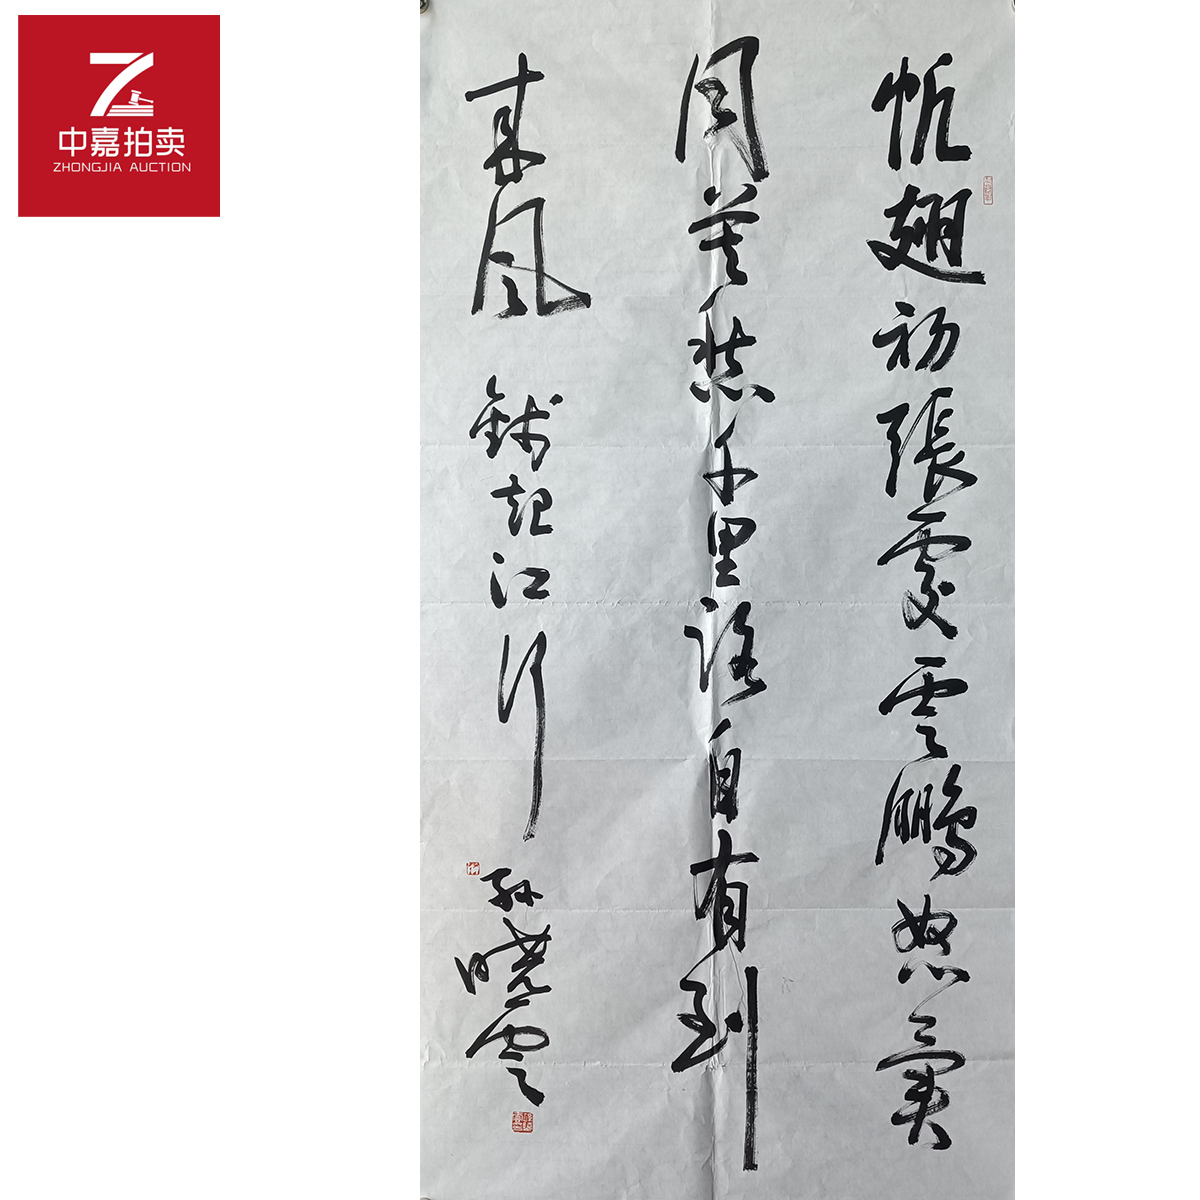 中嘉拍卖
ZHONGJIA AUCTION
帆翅初張處雲鵬怒翼
同莫愁千里路自有到
来風 錢起江行 孫曉雲